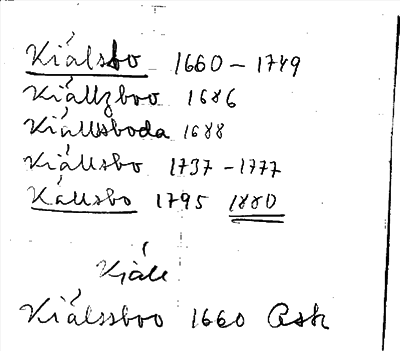 Kiálsbo 1660 – 1749
Kiállzboo 1686
Kiállsboda 1688
Kiállsbo 1737 – 1777
Kállsbo 1795 1880
Kiáll
Kiálssboo 1660 Ask